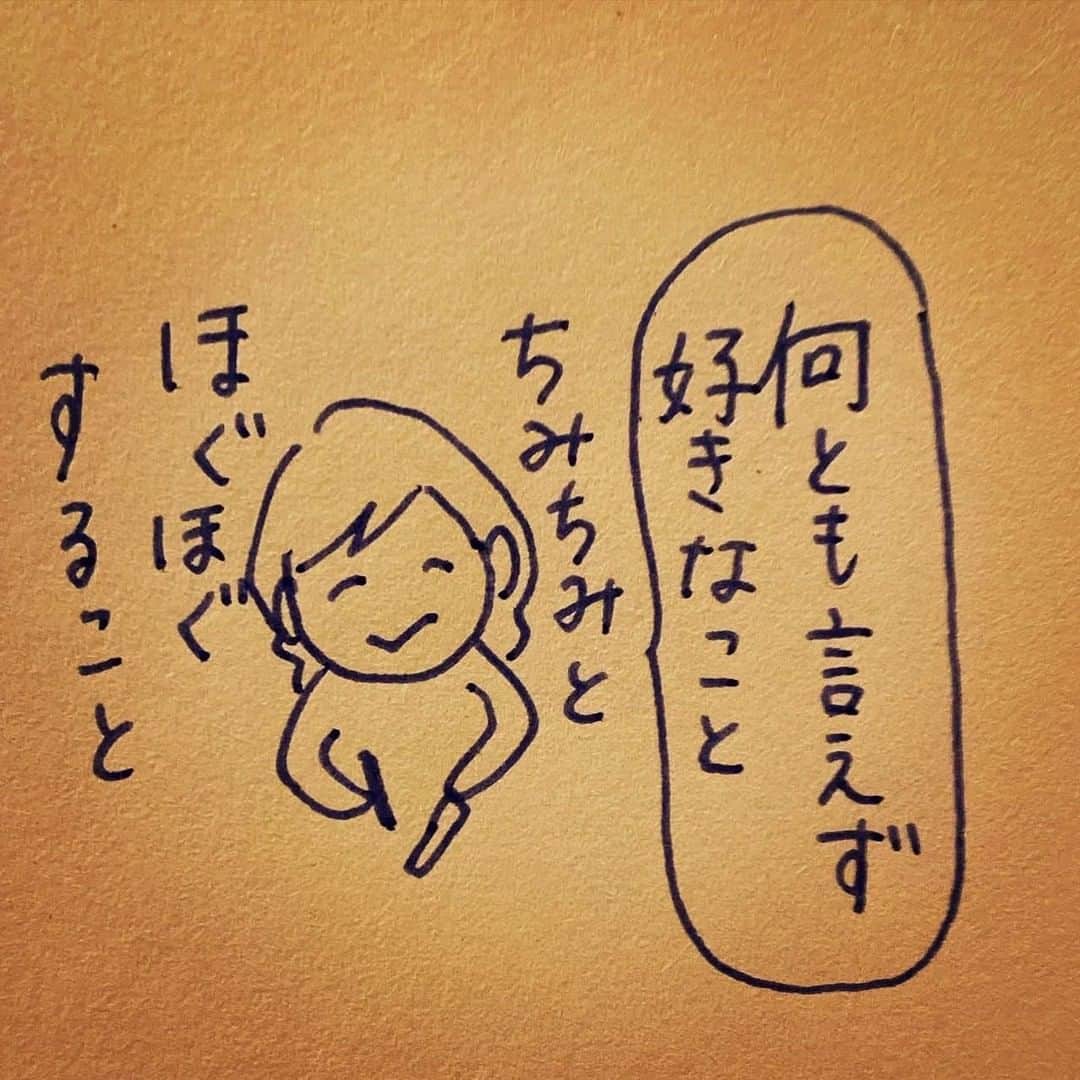 何とも言えず
好きなこと
ちみちみと
ほぐほぐ
すること